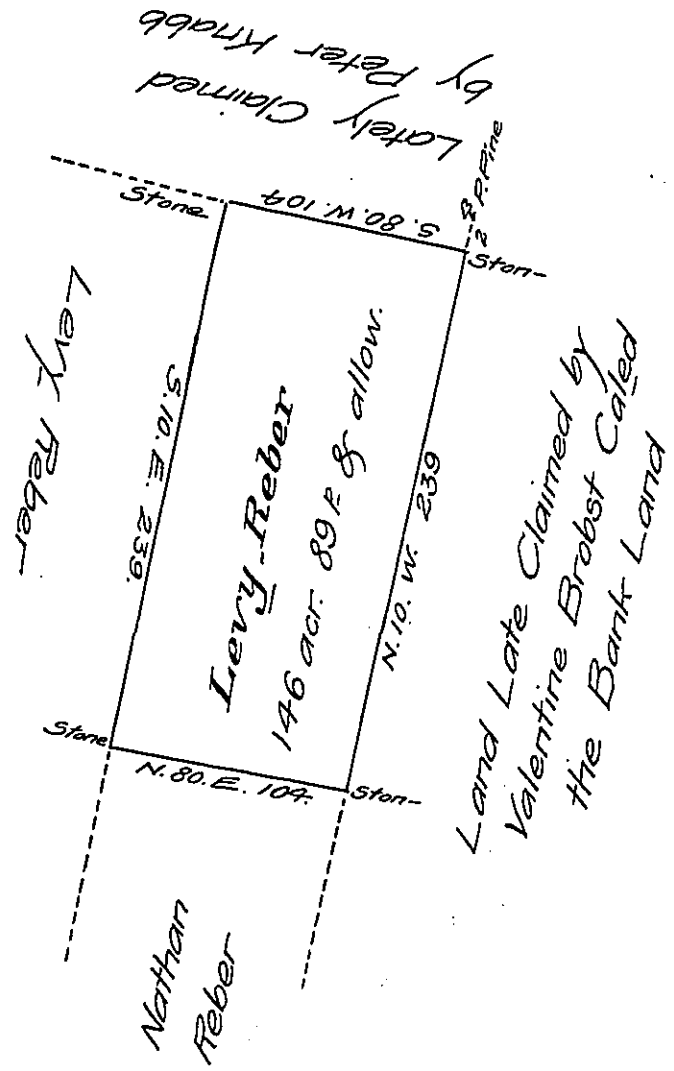 Lately Claimed
by Peter Knabb
P. Pine
2
Stone
S. 80. W. 104
Ston-
Levy Reber
S. 10. E. 239.
Levy Reber
146 acr. 89 P. & allow.
N. 10. W. 239
Land Late Claimed by
Valentine Brobst Caled
the Bank Land
Stone
N. 80. E. 104.
Ston-
Nathan
Reber